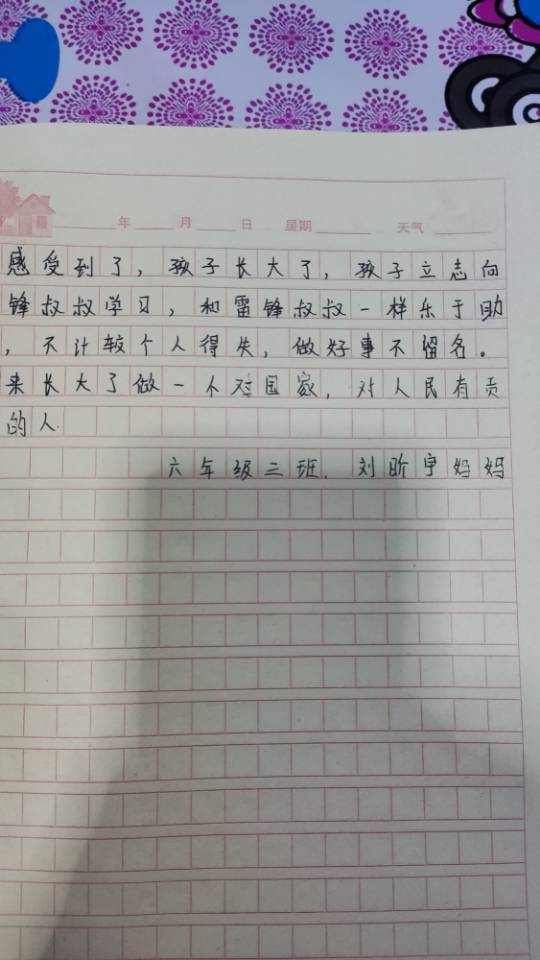 年 月 日 星期 天气
感受到了，孩子长大了，孩子立志向
锋叔叔学习，和雷锋叔叔一样乐于助
，不计较个人得失，做好事不留名。
来长大了做一个对国家，对人民有贡
的人.
六年级三班. 刘昕宇妈妈